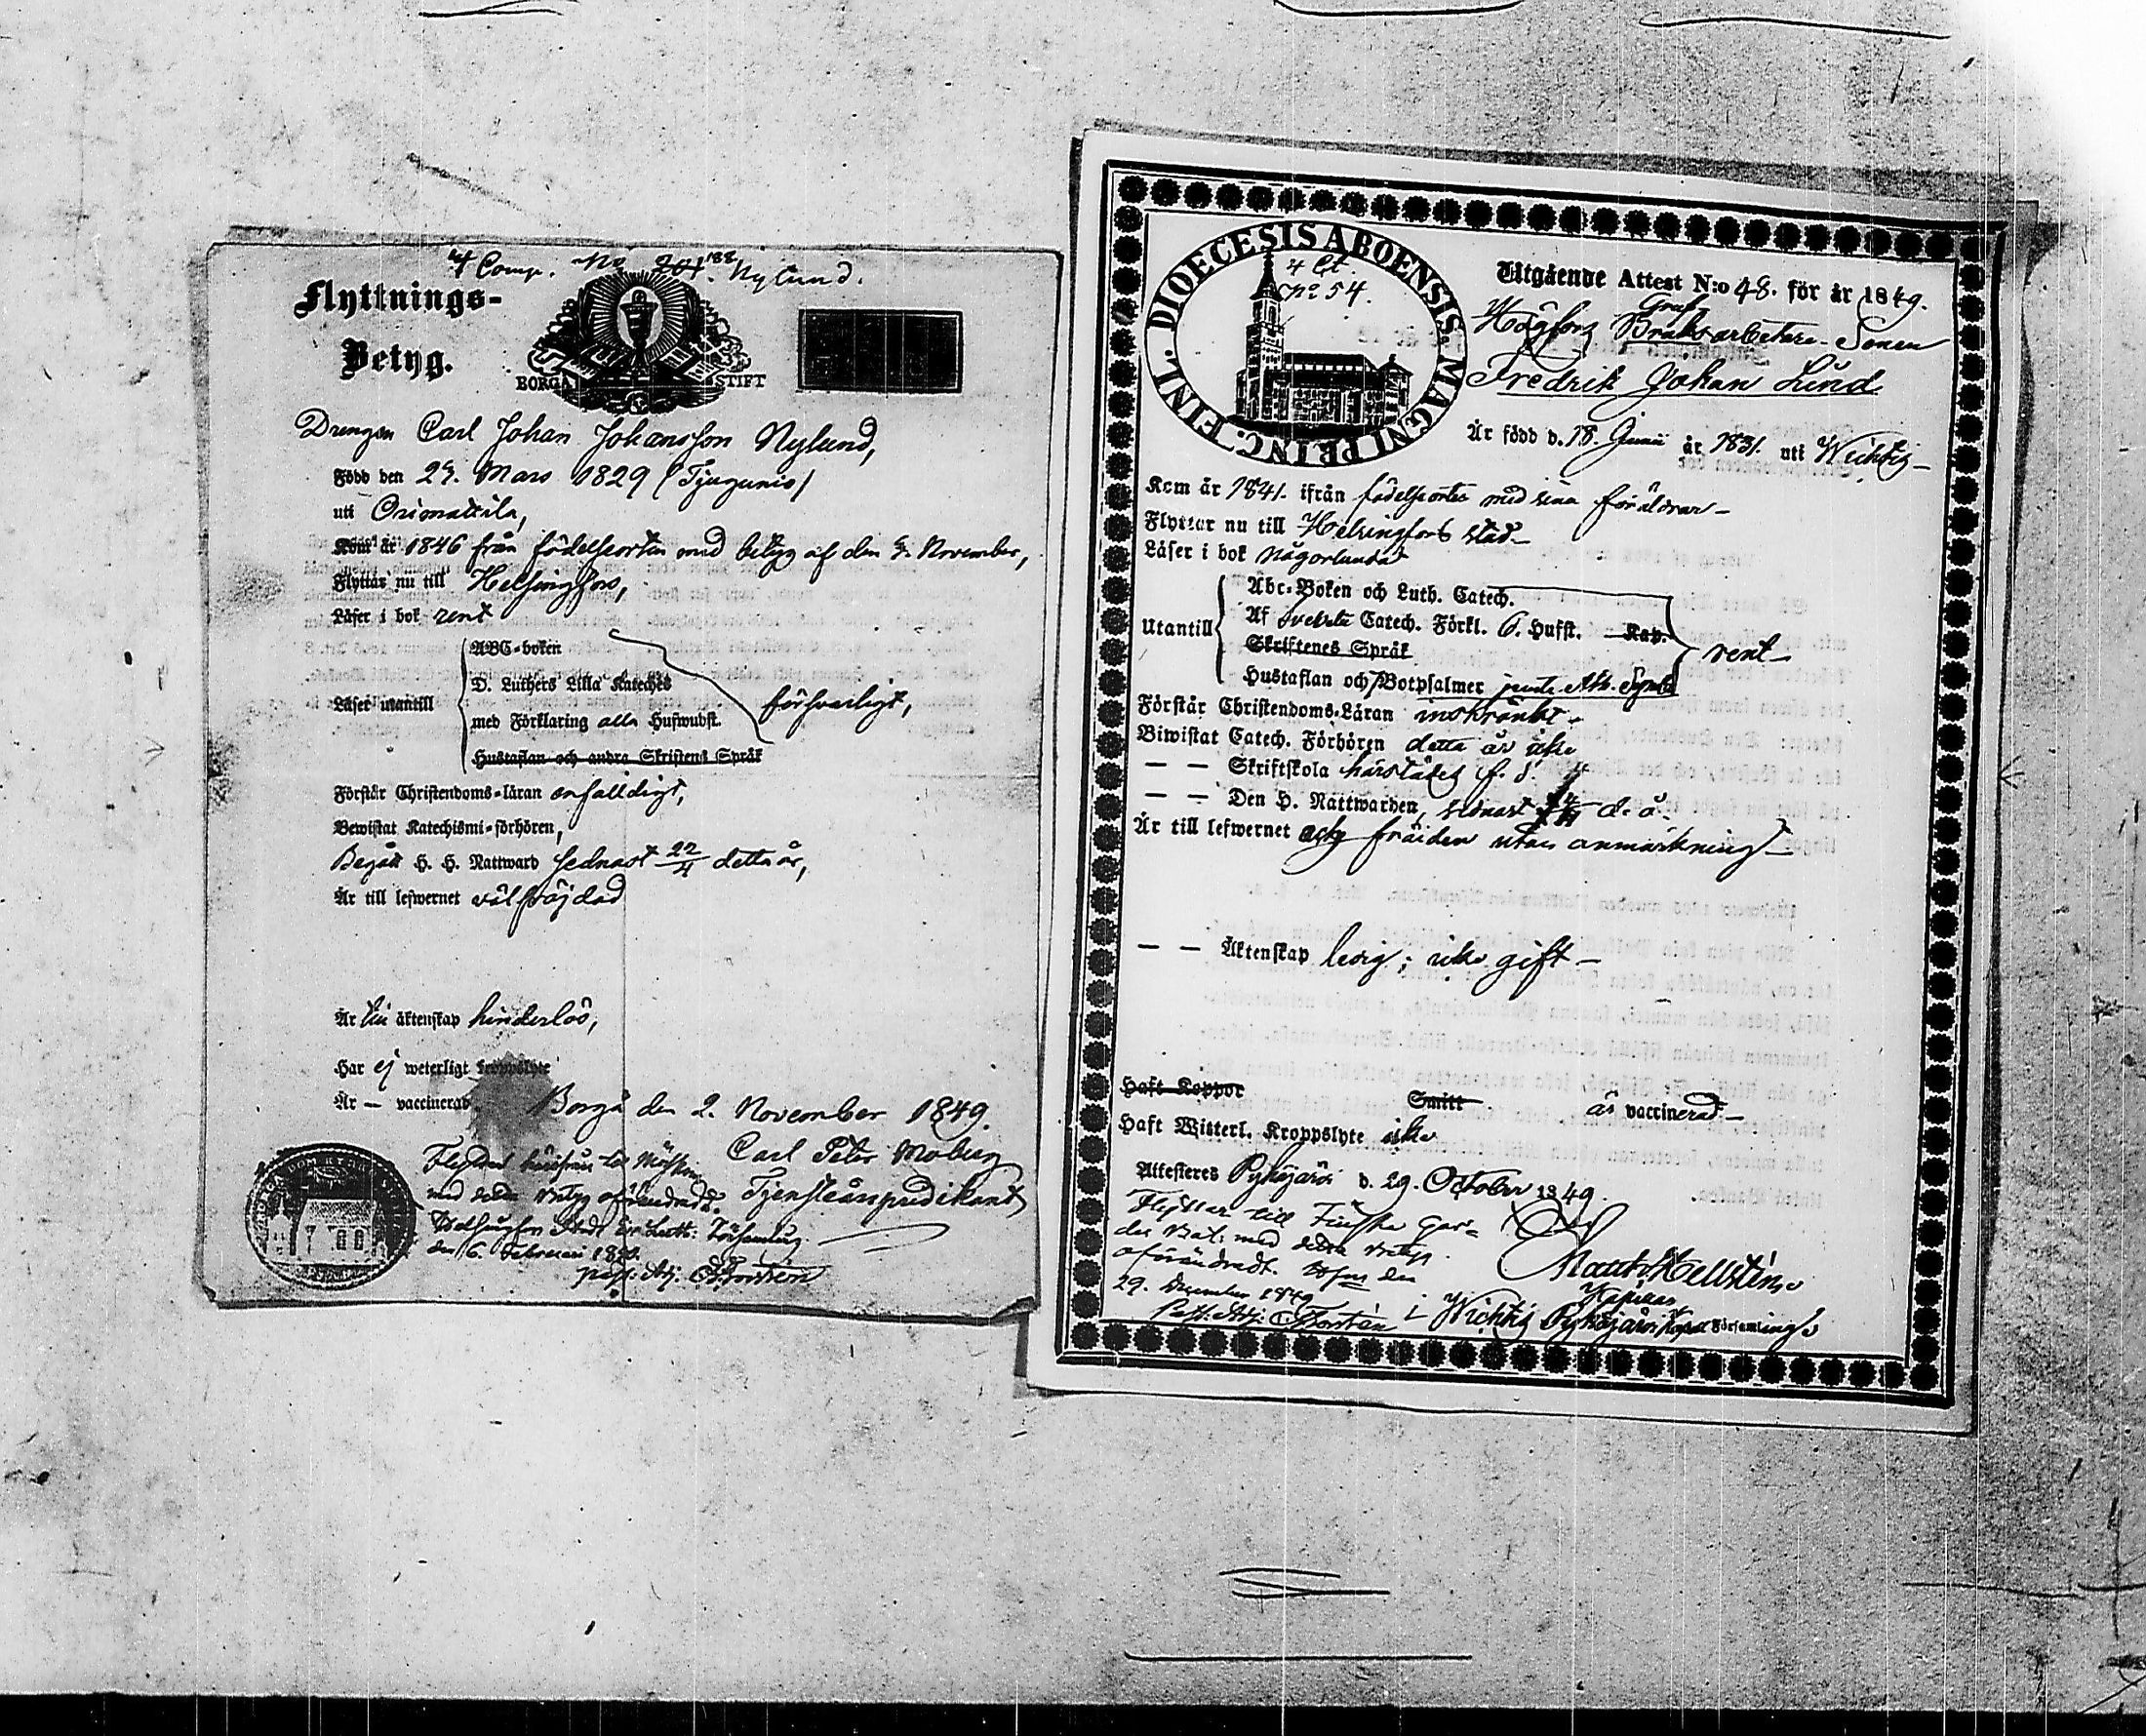 4 Comp. No 201. 188 Nylund.
Flyttnings-
Betyg.
BORGÅ STIFT
Drengen Carl Johan Johansson Nylund,
Född den 29. Mars 1829 (Tjugunio)
uti Orimattila,
Kom år 1846 från födelseorten med betyg af den 9. November,
Flyttar nu till Helsingfors,
Läser i bok rent
ABC-boken
D. Luthers Lilla Kateches
Läser utantill
med Förklaring alla Hufwudst.
försvarligt,
Hustaflan och andra Skriftens Språk
Förstår Christendoms-läran enfalldigt,
Bewistat Katechismi-förhören,
Begått H. H. Nattward sednast 22/4 detta år,
Är till lefwernet välfräjdad
Är till äktenskap hinderlös,
Har ej weterligt kroppslyte
Är — vaccinerad.
Borgå den 2. November 1849.
Carl Peter Moberg
Tjensteårspredikant
Flyttar härifrån till
med detta betyg oförändradt.
den 6. Februari
Past. Adj.
DIOECESIS ABOENSIS. MAGNI PRINC. FINL.
4 Ct.
No 54.
Utgående Attest N:o 48. för år 1849.
Graf
Högfors Bruksarbetare-Sonen
Fredrik Johan Lund
Är född d. 18. Junii år 1831. uti Wichtis —
Kom år 1841. ifrån födelseorten med sina föräldrar —
Flyttar nu till Helsingfors stad —
Läser i bok någorlunda
Abc-Boken och Luth. Catech.
Af Svebelii Catech. Förkl. 6. Hufst. Kap.
Utantill
Skriftenes Språk
rent —
Hustaflan och 7 Botpsalmer jemte Ath. Symb.
Förstår Christendoms-Läran inskränkt —
Biwistat Catech. Förhören detta år icke
— — Skriftskola härstädes f. d.
— — Den H. Nattwarden, sednast d. å.
Är till lefwernet och fräjden utan anmärkning —
— — Äktenskap ledig; icke gift —
Haft Koppor Smitt är vaccinerad —
Haft Witterl. Kroppslyte icke
Attesteres Pyhäjärvi d. 29. October 1849.
Flyttar till Finska Gar-
des Bat: med detta betyg
oförändradt. Hfors den
29. December 1849
Past: Adj:
Hellsten
Kapellan
i Wichtis Pyhäjärvi Kapell Församling